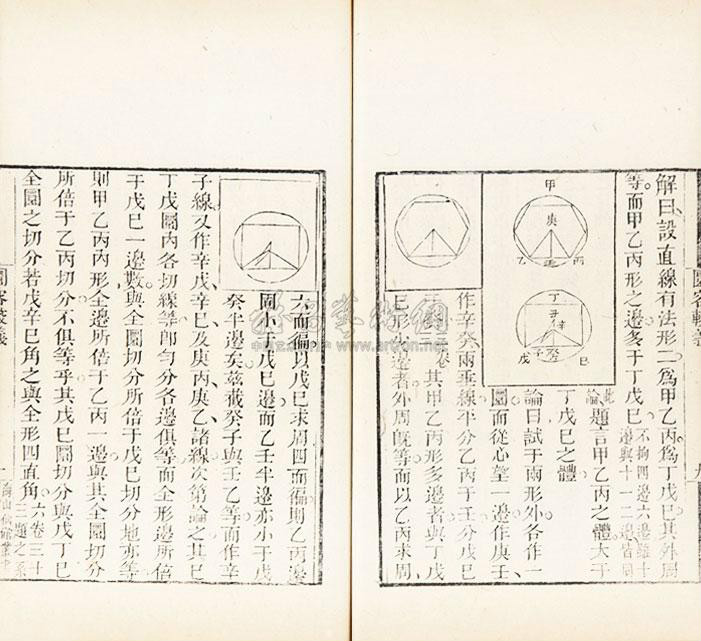 解曰設直線有法形二為甲乙丙為丁戊巳其外周
等而甲乙丙形之邊多于丁戊巳
不拘四邊六邊雖十
邊與十一二邊皆同
此
論
題言甲乙丙之體大于
丁戊巳之體
論曰試于兩形外各作一
圜而從心望一邊作庚壬
作辛癸兩垂線平分乙丙于壬分戊巳
于癸
其甲乙丙形多邊者與丁戊
巳形少邊者外周既等而以乙丙求周
甲
庚
乙
壬
丙
丁
辛
戊
子
癸
巳
圜容較義
六而徧以戊巳求周四而徧則乙丙邊
固小于戊巳邊而乙壬半邊亦小于戊
癸半邊矣茲截癸子與壬乙等而作辛
子線又作辛戊辛巳及庚丙庚乙諸線次第論之其巳
丁戊圜內各切線等即勻分各邊俱等而全形邊所倍
于戊巳一邊數與全圜切分所倍于戊巳切分地亦等
則甲乙丙內形全邊所倍于乙丙一邊與其全圜切分
所倍于乙丙切分不俱等乎其戊巳圜切分與戊丁巳
全圜之切分若戊辛巳角之與全形四直角
六卷三十
三題之系
圜容較義
海山仙館叢書